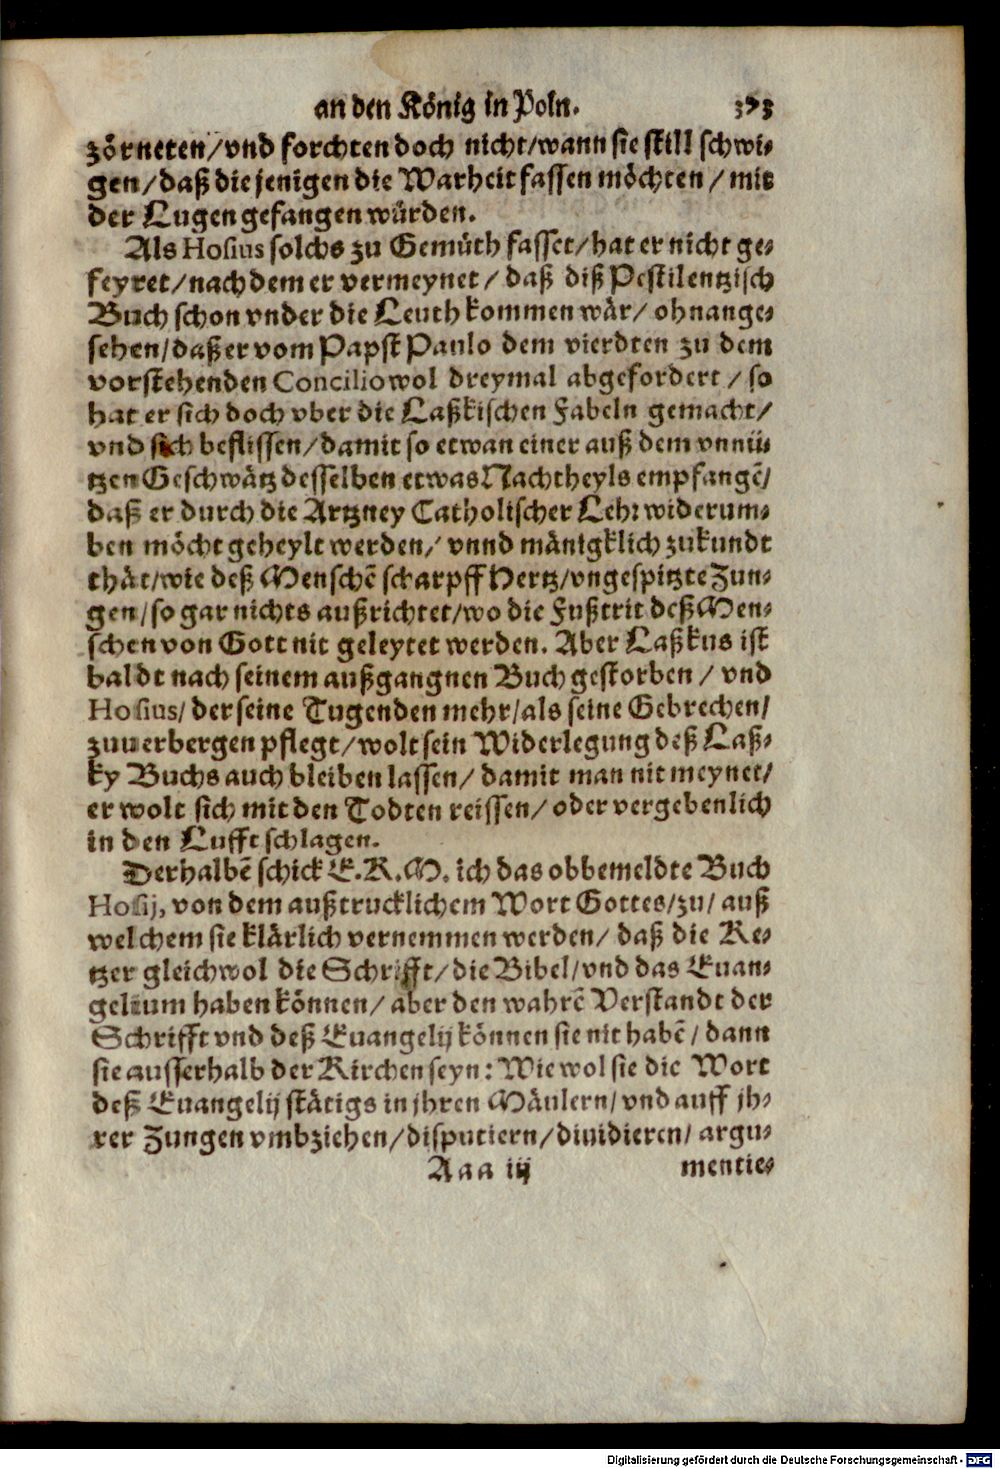 an den König in Poln. 373
zörneten/vnd forchten doch nicht/wann sie still schwi-
gen/daß die jenigen die Warheit fassen möchten/mit
der Lugen gefangen würden.
Als Hosius solchs zu Gemüth fasset/hat er nicht ge-
feyret/nach dem er vermeynet/daß diß Pestilentzisch
Buch schon vnder die Leuth kommen wär/ohnange-
sehen/daß er vom Papst Paulo dem vierdten zu dem
vorstehenden Concilio wol dreymal abgefordert/so
hat er sich doch vber die Laßkischen Fabeln gemacht/
vnd sich beflissen/damit so etwan einer auß dem vnnü-
tzen Geschwätz desselben etwas Nachtheyls empfangē/
daß er durch die Artzney Catholischer Lehr widerum-
ben möcht geheylt werden/vnnd mänigklich zukundt
thät/wie deß Menschē scharpff Hertz/vngespitzte Zun-
gen/so gar nichts außrichtet/wo die Fußtrit deß Men-
schen von Gott nit geleytet werden. Aber Laßkus ist
baldt nach seinem außgangnen Buch gestorben/vnd
Hosius/der seine Tugenden mehr/als seine Gebrechen/
zuuerbergen pflegt/wolt sein Widerlegung deß Laß-
ky Buchs auch bleiben lassen/damit man nit meynet/
er wolt sich mit den Todten reissen/oder vergebenlich
in den Lufft schlagen.
Derhalbē schick E.K.M. ich das obbemeldte Buch
Hosij, von dem außtrucklichem Wort Gottes/zu/auß
welchem sie klärlich vernemmen werden/daß die Ke-
tzer gleichwol die Schrifft/die Bibel/vnd das Euan-
gelium haben können/aber den wahrē Verstandt der
Schrifft vnd deß Euangelij können sie nit habē/dann
sie ausserhalb der Kirchen seyn: Wiewol sie die Wort
deß Euangelij stätigs in jhren Mäulern/vnd auff jh-
rer Zungen vmbziehen/disputiern/diuidieren/argu-
Aaa iij mentie-
Digitalisierung gefördert durch die Deutsche Forschungsgemeinschaft - DFG